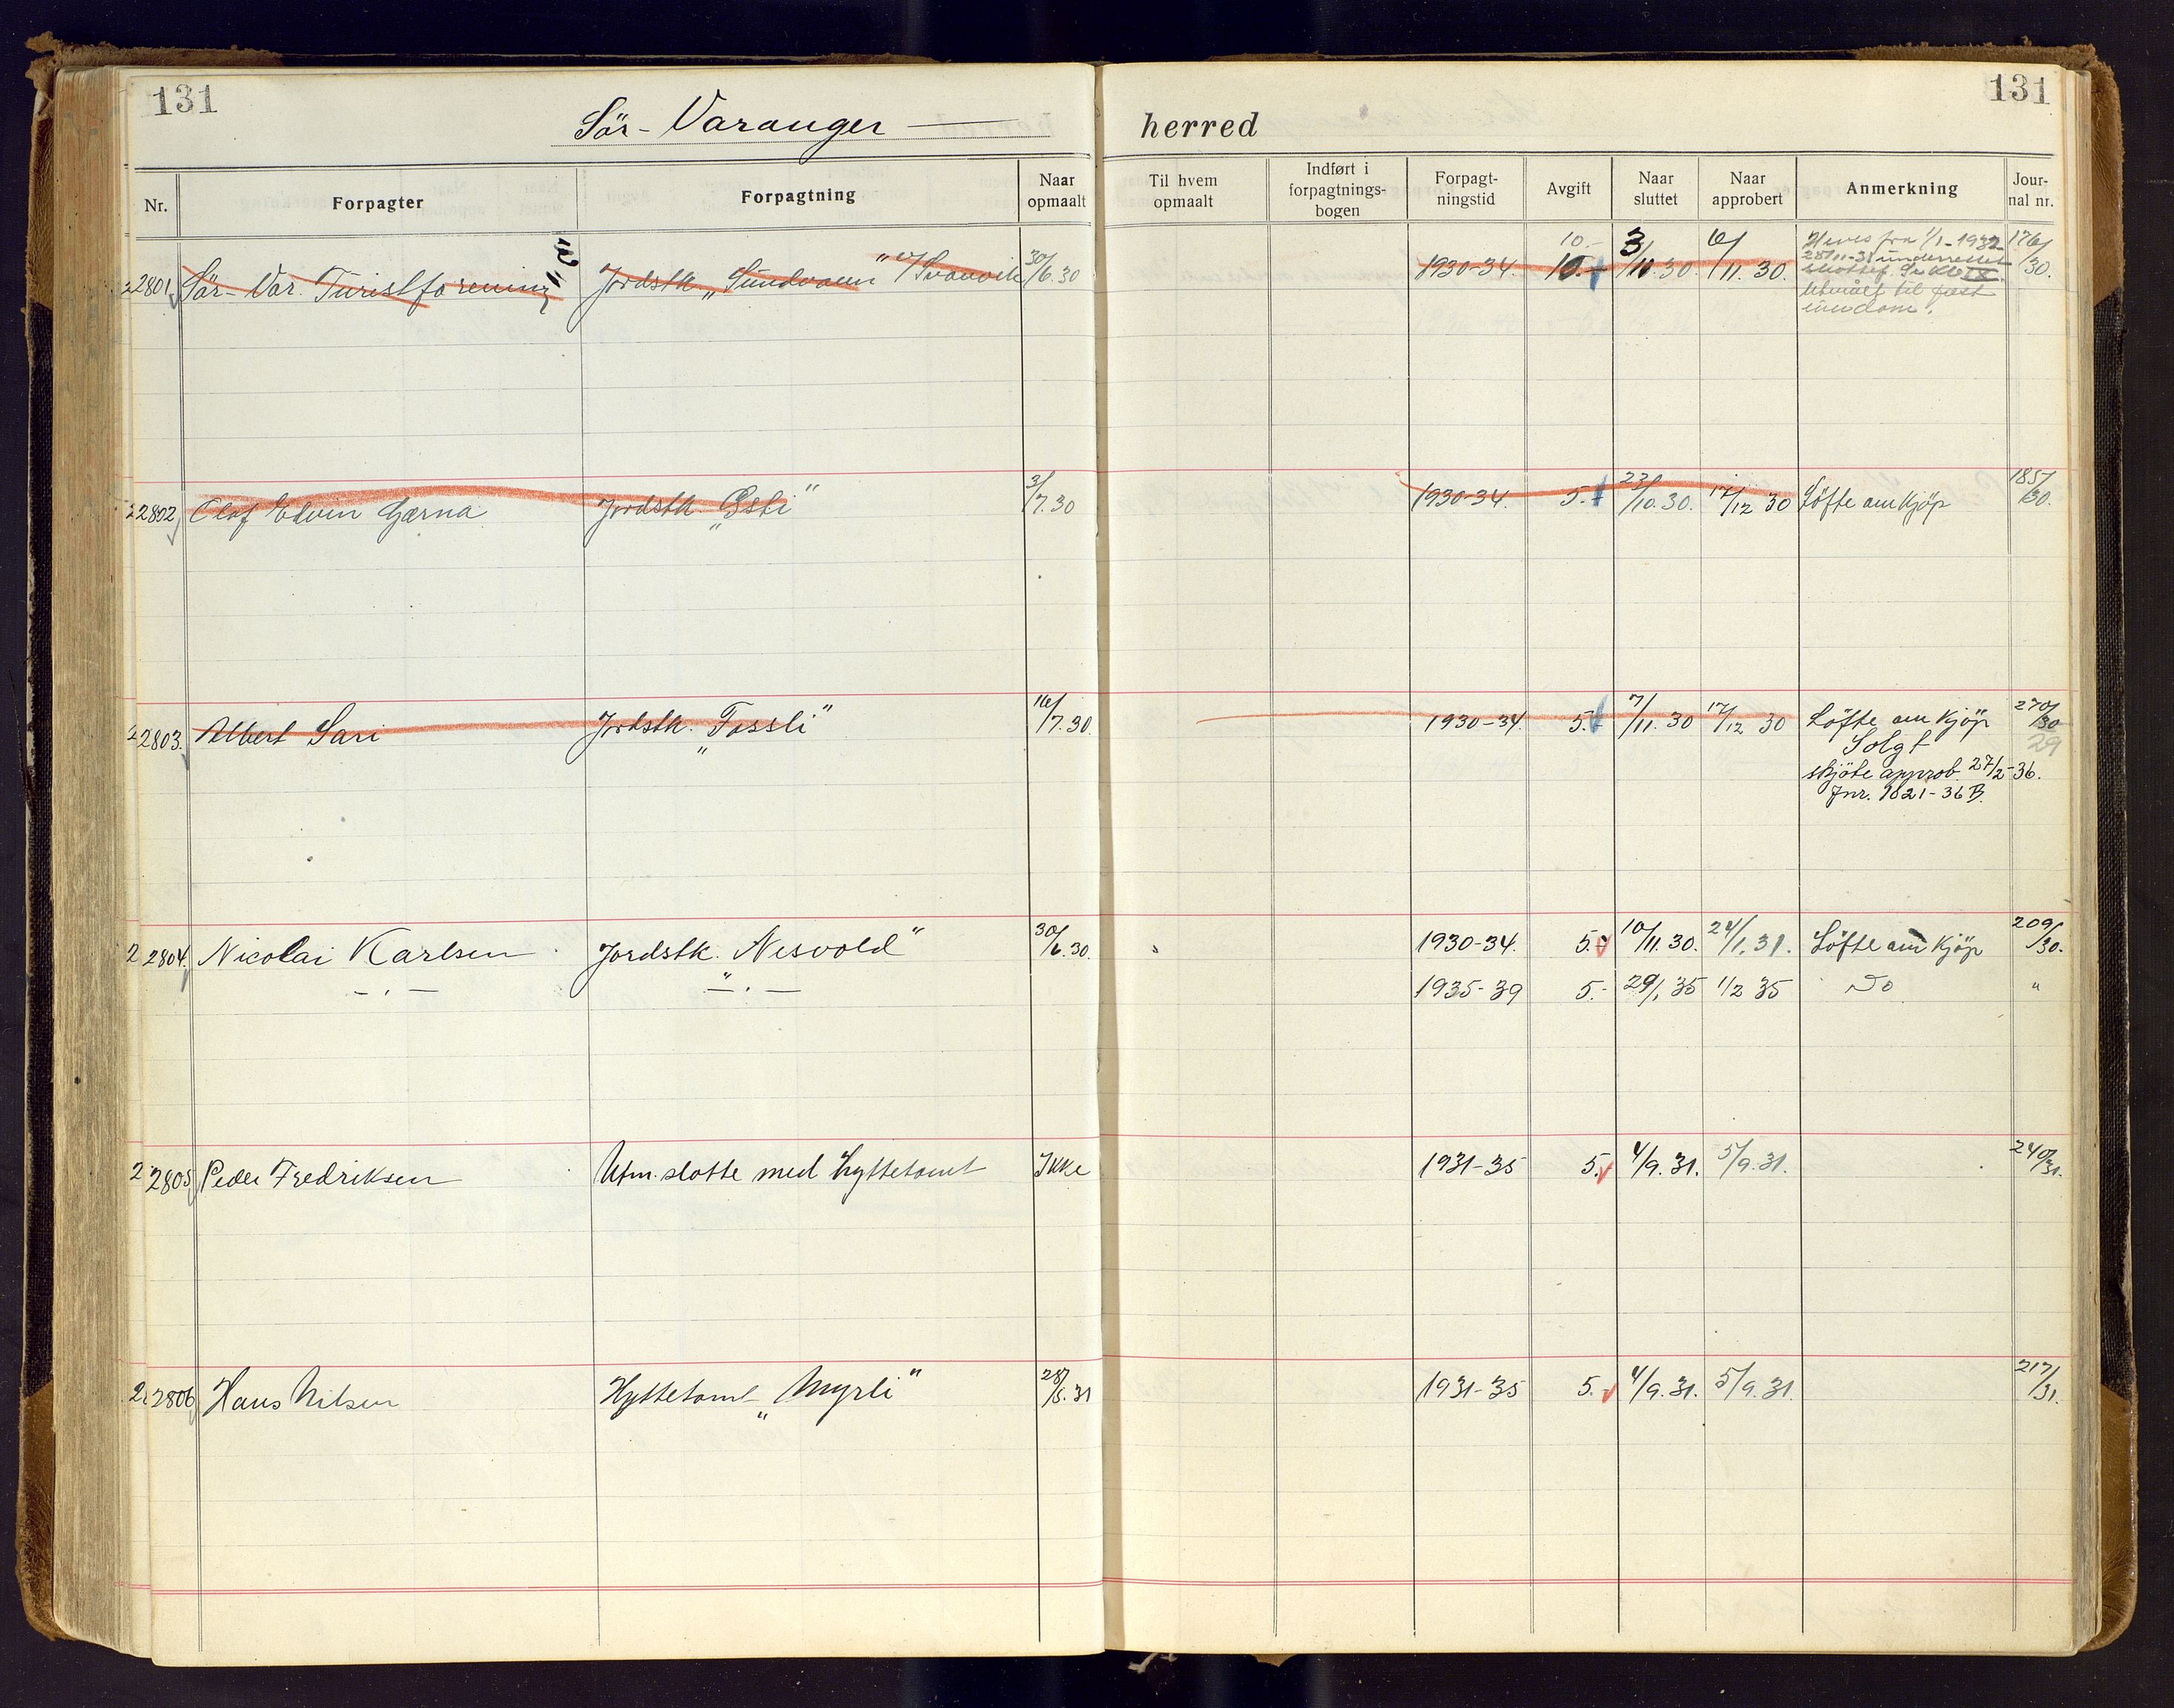 131
131
Sör-Varanger herred
Nr. Forpagter Forpagtning Naar opmaalt Til hvem opmaalt Indført i forpagtnings-bogen Forpagt-ningstid Avgift Naar sluttet Naar approbert Anmerkning Jour-nal nr.
10.-
2801 Sör-Var. Turistforening Jordstk. „Sundvann" v/ Svanvik 30/6.30 1930-34. 10.- 3/11.30. 6/11.30. Heves fra 1/1-1932 176/30.
28/11-31 underrettet
Utmålt til fast
eiendom.
2802 Olaf Edvin Gjerna Jordstk. „Gsti" 3/7.30 1930-34. 5.- 23/10.30. 17/12 30 Löfte om kjöp 185/30.
2803. Albert Sari Jordstk. „Fossli" 16/7.30. 1930-34. 5.- 7/11.30 17/12 30 Löfte om kjöp 270/30
Solgt 29
skjöte approb. 27/2-36.
Jnr. 1821-36 B.
2804. Nicolai Karlsen Jordstk. Nesvold" 30/6.30. 1930-34. 5.- 10/11.30. 24/1.31. Löfte om kjöp 209/30.
—.— —"— 1935-39 5.- 29/1 35 1/2 35 Do "
2805 Peder Fredriksen Utm.slotte med hyttetomt Ikke 1931-35 5. 4/9.31. 5/9.31. 240/31.
2806 Hans Nilsen Hyttetomt „Myrli" 28/8.31 1931-35 5. 4/9.31. 5/9.31. 217/31.